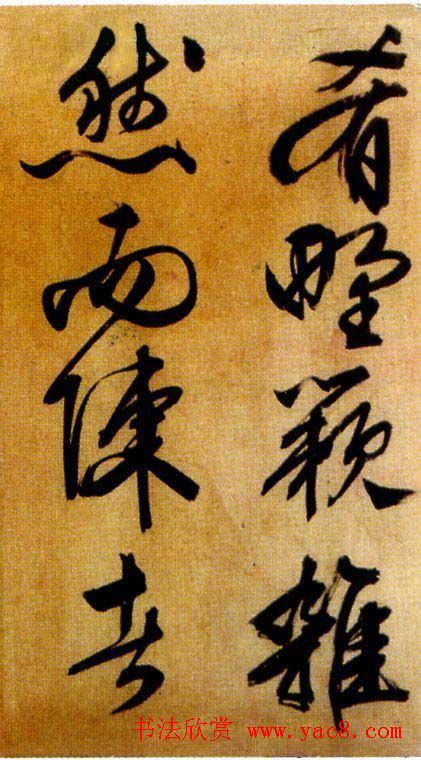 肴野蔌雜
然而陳者
书法欣赏 www.yac8.com